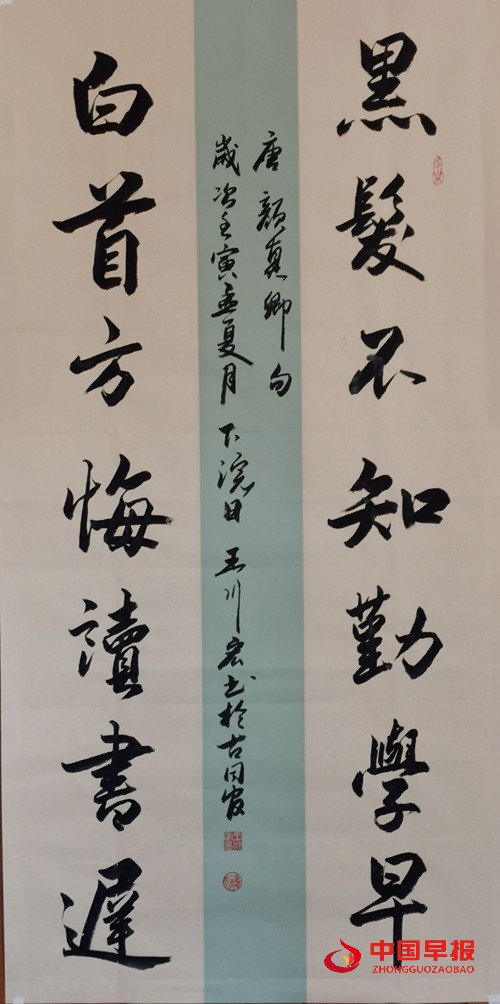 黑髮不知勤學早
唐顏真卿句
歲次壬寅孟夏月下浣日王川宏書於古同官
白首方悔讀書遲
中国早报
ZHONGGUOZAOBAO